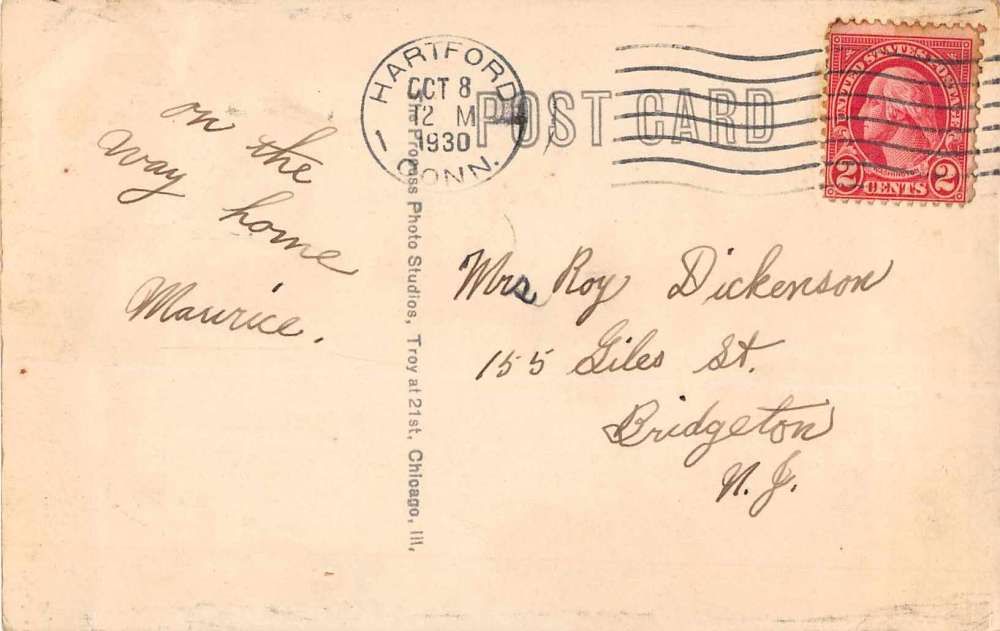 HARTFORD
OCT 8
12 M
1930
1
CONN.
POST CARD
UNITED STATES POSTAGE
WASHINGTON
2 CENTS 2
on the
way home
Maurice.
The Process Photo Studios, Troy at 21st, Chicago, Ill,
Mrs Roy Dickenson
155 Giles St.
Bridgeton
N. J.